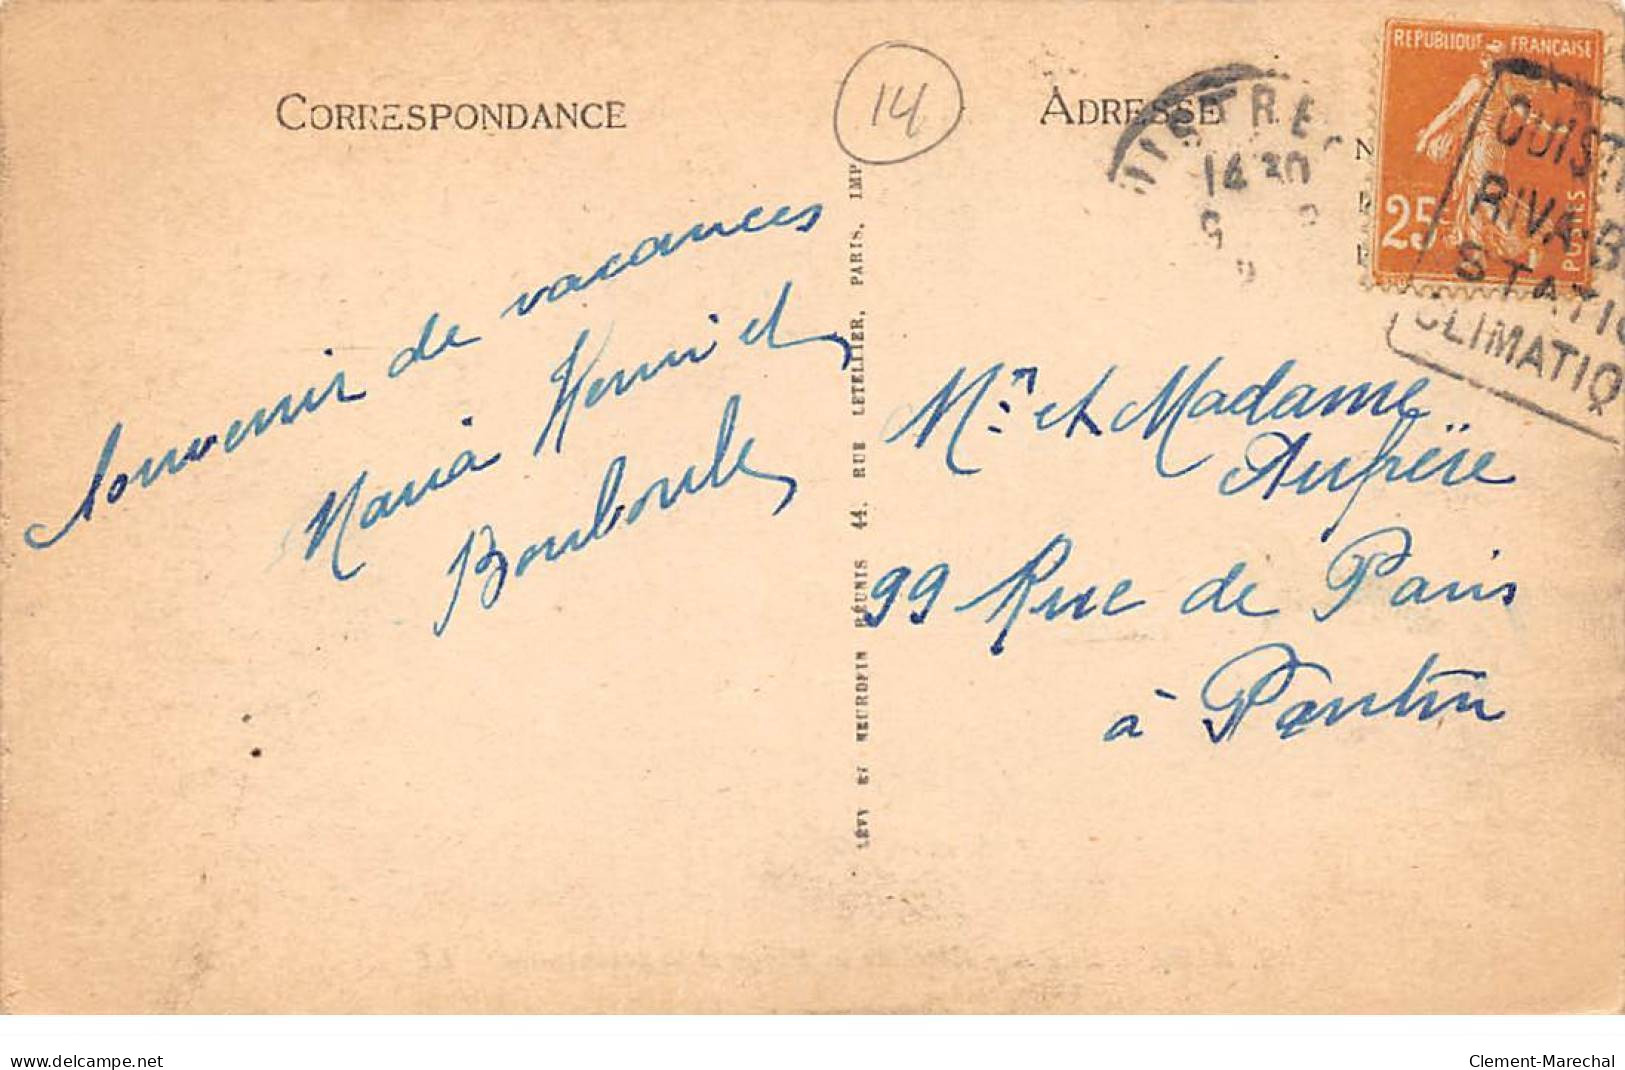 CORRESPONDANCE
14
ADRESSE
REPUBLIQUE FRANÇAISE
25
POSTES
14 30
OUIST
RIVA-B
STATIO
CLIMATIQ
Souvenir de vacances
Maria Henri et
Bouboule
LÉVY ET NEURDEIN RÉUNIS 44, RUE LETELLIER, PARIS, IMP
Mr. et Madame
Aupère
99 Rue de Paris
à Pantin
www.delcampe.net
Clement-Marechal